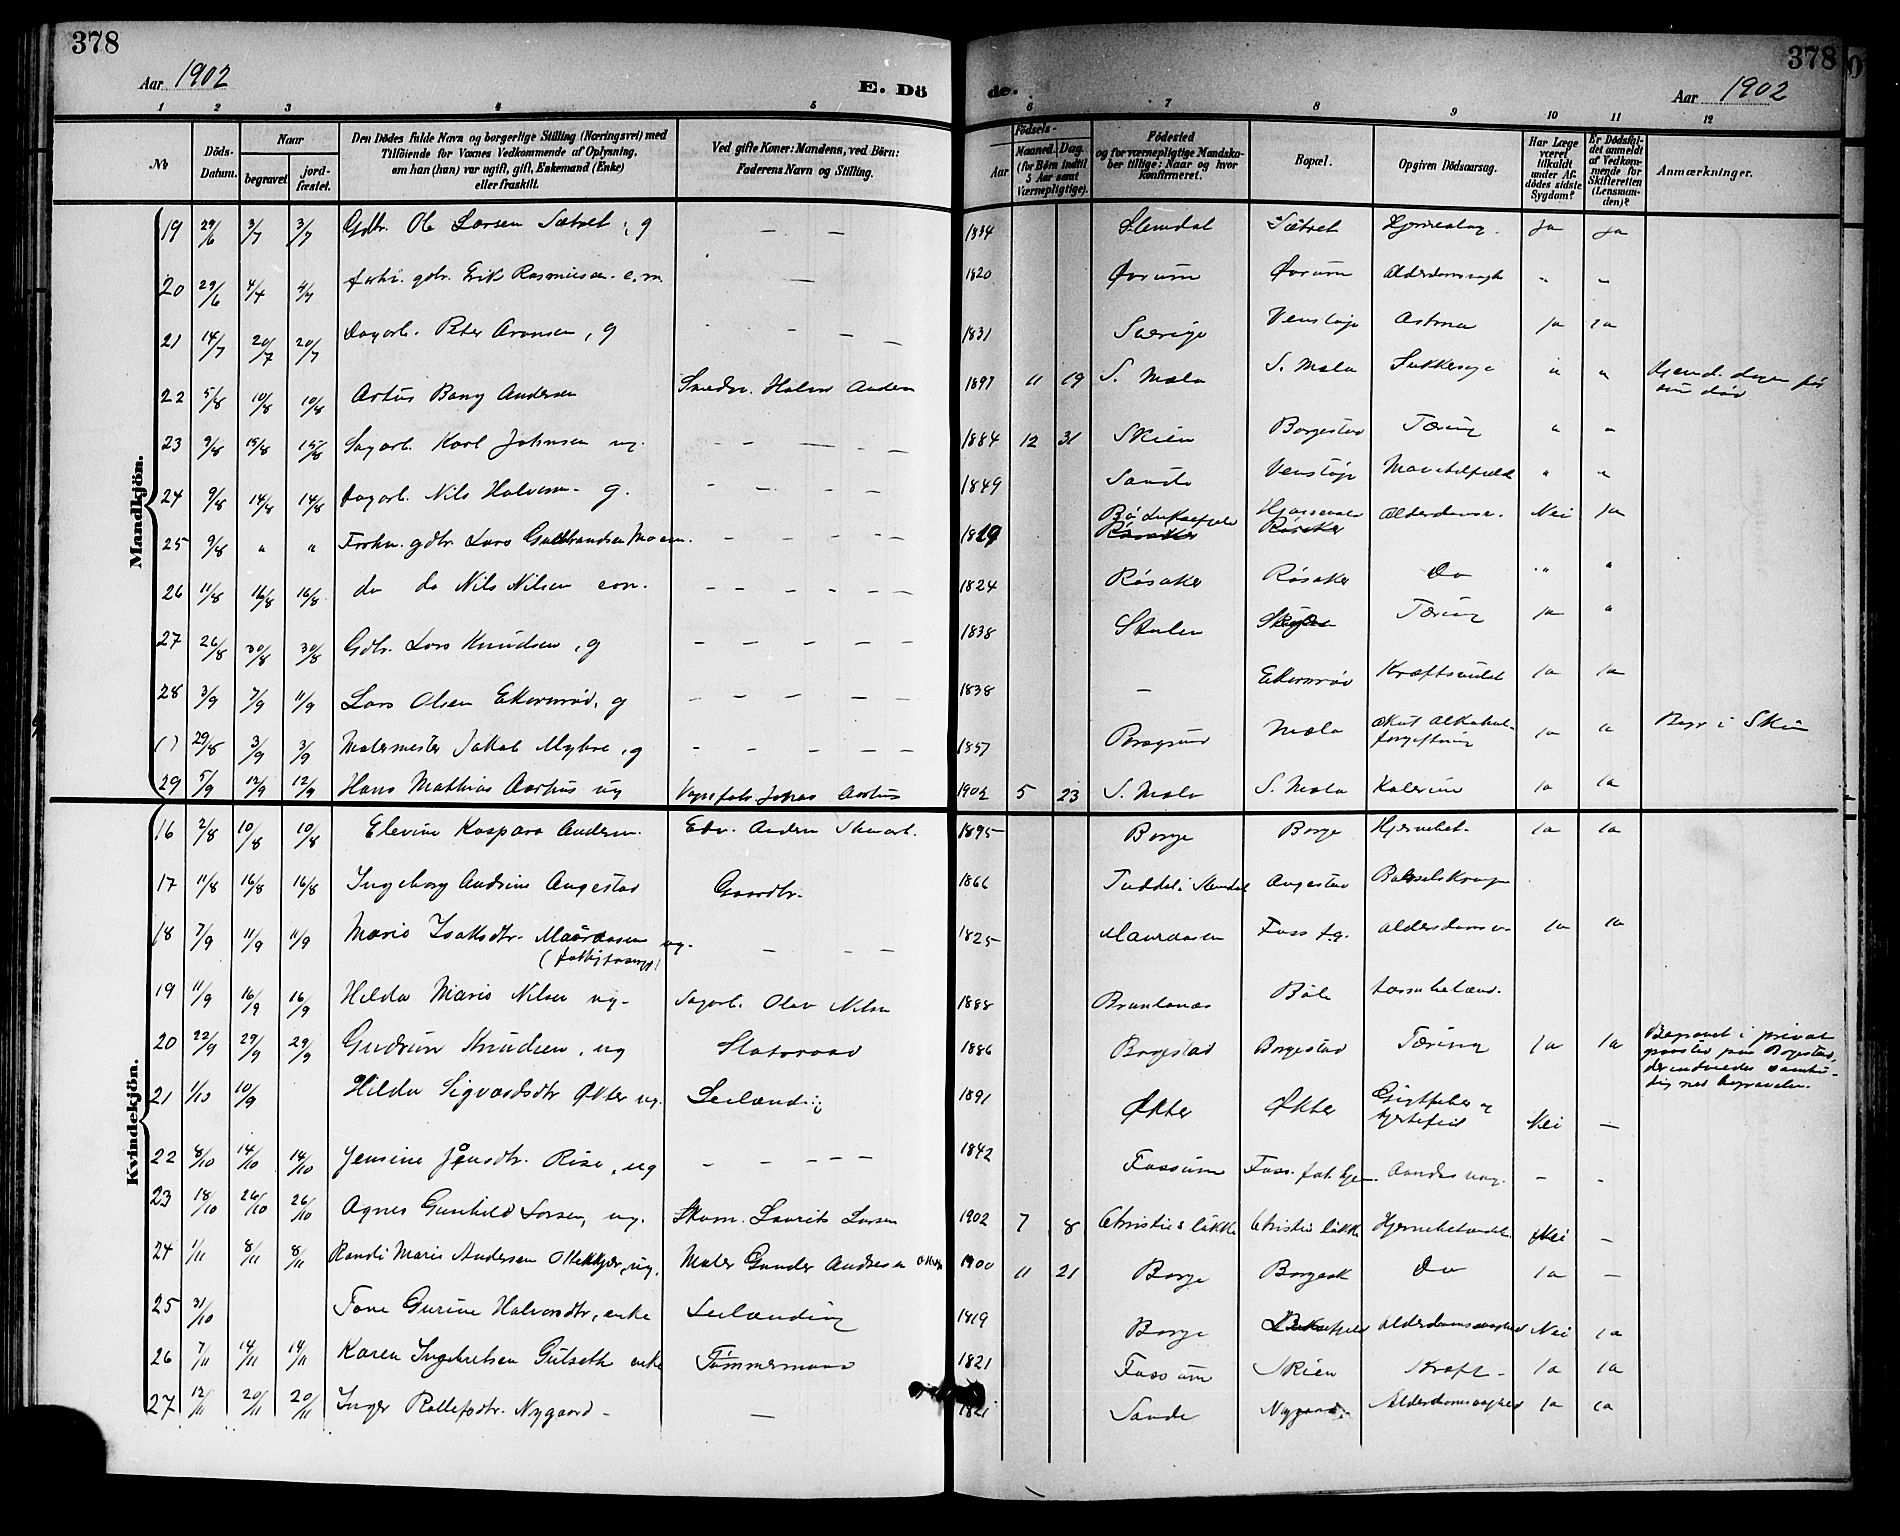 378
Aar 1902
E. Dö
1 2 3 4 5
No
Döds-
Datum.
Naar
begravet
jord-
fæstet.
Den Dödes fulde Navn og borgerlige Stilling (Næringsvei) med
Tilföiende for Voxnes Vedkommende af Oplysning,
om han (hun) var ugift, gift, Enkemand (Enke)
eller fraskilt.
Ved gifte Koner: Mandens, ved Börn:
Faderens Navn og Stilling.
Mandkjön.
19 29/6 3/7 3/7 Gdbr. Ole Larsen Sætret, g — —
20 29/6 4/7 4/7 forhv. gdbr. Erik Rasmussen e.m. —
21 14/7 20/7 20/7 Dagarb. Peter Aronsen, g - - - -
22 5/8 10/8 10/8 Artus Bang Andersen
23 9/8 15/8 15/8 Sagarb. Karl Johnsen ug. - - - - -
24 9/8 14/8 14/8 Dagarb. Nils Halvorsen g. - - - - -
25 9/8 " " Forhv. gdbr. Lars Gulbrandsen Moen. - - - - -
26 11/8 16/8 16/8 do do Nils Nilsen em. - - - - -
27 26/8 30/8 30/8 Gdbr. Lars Knudsen, g - - - - -
28 3/9 7/9 11/9 Lars Olsen Ekornrød, g - - - - -
( ) 29/8 3/9 3/9 Malermester Jakob Myhre, g - - - - -
29 5/9 12/9 12/9 Hans Mathias Aarhus ug Johas Aarhus
Kvindekjön.
16 2/8 10/8 10/8 Elevine Kaspara Andersen. Edv. Andersen
17 11/8 16/8 16/8 Ingeborg Andrine Augestad Gaardbr.
18 7/9 11/9 11/9 Marie Isaksdtr. Maurdasen ug. — — —
19 11/9 16/9 16/9 Hilda Marie Nilsen ug. Sagarb. Olav Nilsen
20 22/9 29/9 29/9 Gudrun Knudsen, ug Statsraad
21 1/10 10/9 Hilda Sigvardsdtr Økter ug. Leilænding
22 8/10 14/10 14/10 Jensine Jensdtr. Rise, ug - - - - -
23 18/10 26/10 26/10 Agnes Gunhild Larsen, ug. Skom. Laurits Larsen
24 1/11 8/11 8/11 Randi Marie Andersen Ottekjær, ug. Maler Gunder Andersen
25 31/10 Tone Gurine Halvorsdtr, enke Leilænding
26 7/11 14/11 14/11 Karen Ingebretsen Gulseth enke Tømmermand
27 12/11 20/11 20/11 Inger Rollefsdtr. Nygaard - —
378
Aar 1902
de.
6 7 8 9 10 11 12
Födsels-
Aar
Maaned. Dag
(for Börn indtil
5 Aar samt
Værnepligtige).
Födested
og for værnepligtige Mandska-
ber tillige: Naar og hvor
konfirmeret.
Bopæl.
Opgiven Dödsaarsag.
Har Læge
været
tilkaldt
under Af-
dödes sidste
Sygdom?
Er Dödsfal-
det anmeldt
af Vedkom-
mende for
Skifteretten
(Lensman-
den)?
Anmærkninger.
1834 Slemdal Sætret ja ja
1820 Øvrum Øvrum Alderdomssvagh " "
1831 Sverige Venstøp Astma ja ja
1897 11 19 S. Mæla S. Mæla Sukkersyge " "
1884 12 31 Skien Borgestad Tæring " "
1849 Sande Venstøp " "
1819 Bø Røsaker Alderdomssv. Nei ja
1824 Røsaker Røsaker Do " "
1838 Stulen Tæring ja "
1838 — Ekornrød Kræftsvulst ja ja
1857 Porsgrund Mæla akut Alkohol-
forgiftning ja " Begr i Skien
1902 5 23 S. Mæla S. Mæla ja ja
1895 Borge Borge Hjernebet. ja ja
1866 Tuddal i Slemdal Augestad Barselskrampe
1825 Maurdasen Foss f.g. Alderdomssv. ja ja
1888 Brunlanæs Bøle
1886 Borgestad Borgestad Tæring ja ja
Begravet i privat
gravsted paa Borgestad,
der indviedes samti-
dig med begravelsen.
1891 Økter Økter Gigtfeber og
hjertefeil Nei —
1842 Fossum Foss. fat. hjem. - -
1902 7 8 Christies løkke Christies løkke Hjernebetændels. Nei —
1900 11 21 Borge Do ja —
1819 Borge Alderdomssvaghed Nei ja
1821 Fossum Skien Kræft - ja ja
1821 Sande Nygaard. Alderdomssvaghed ja ja